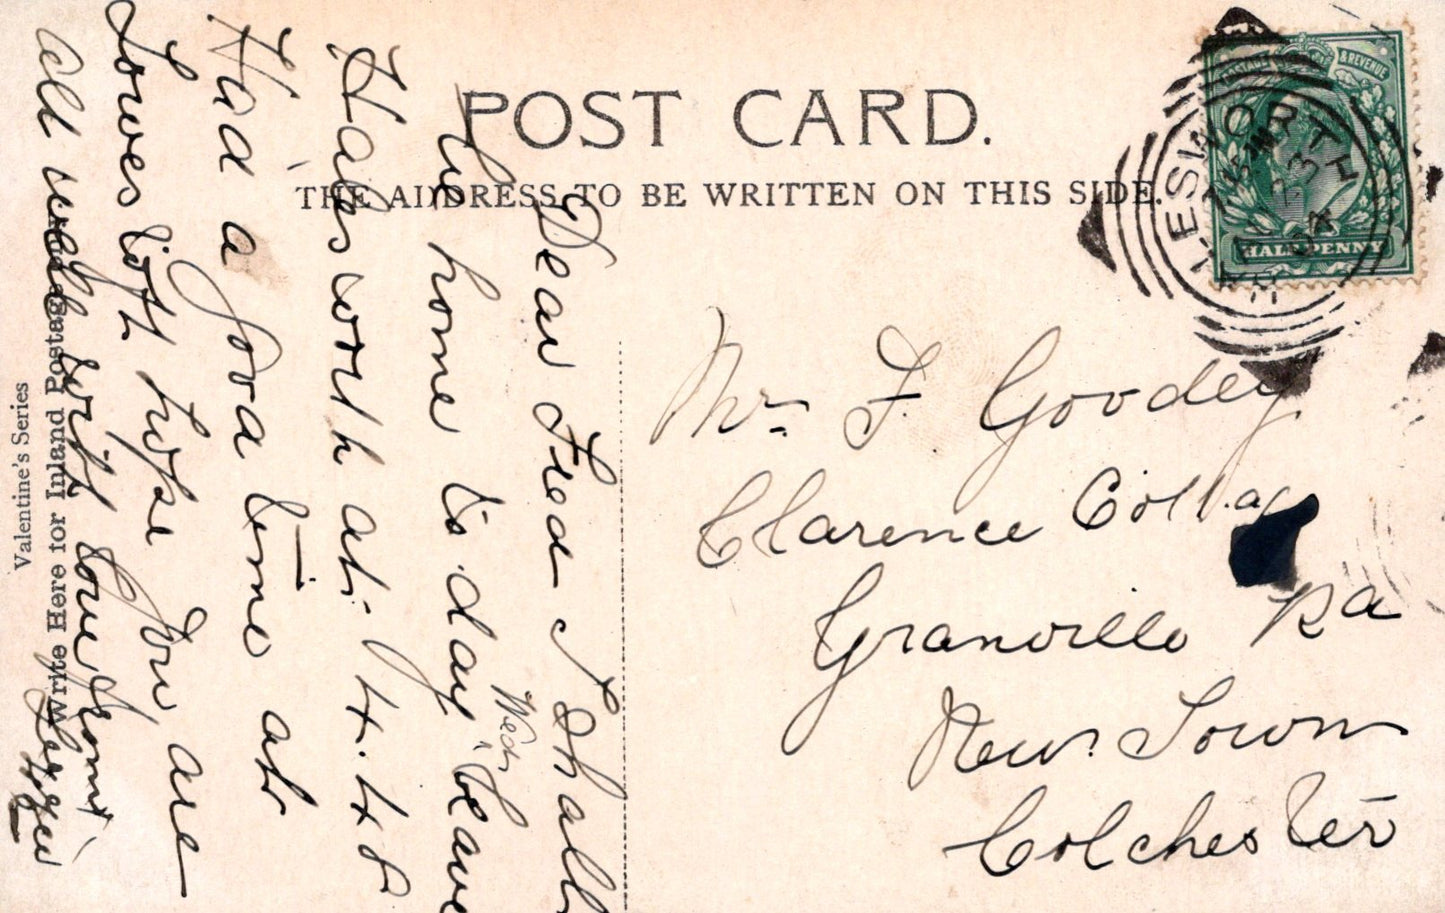 POST CARD.
THE ADDRESS TO BE WRITTEN ON THIS SIDE.
POSTAGE & REVENUE
HALFPENNY
Valentine's Series
Write Here for Inland Postage
Dear Fred I shall
be home to day Weds leave
Halesworth at 4.48
Had a good time at
Lowestoft hope you are
all well with love from
Mr F. Goodey
Clarence Cottag
Granville Rd
New Town
Colchester